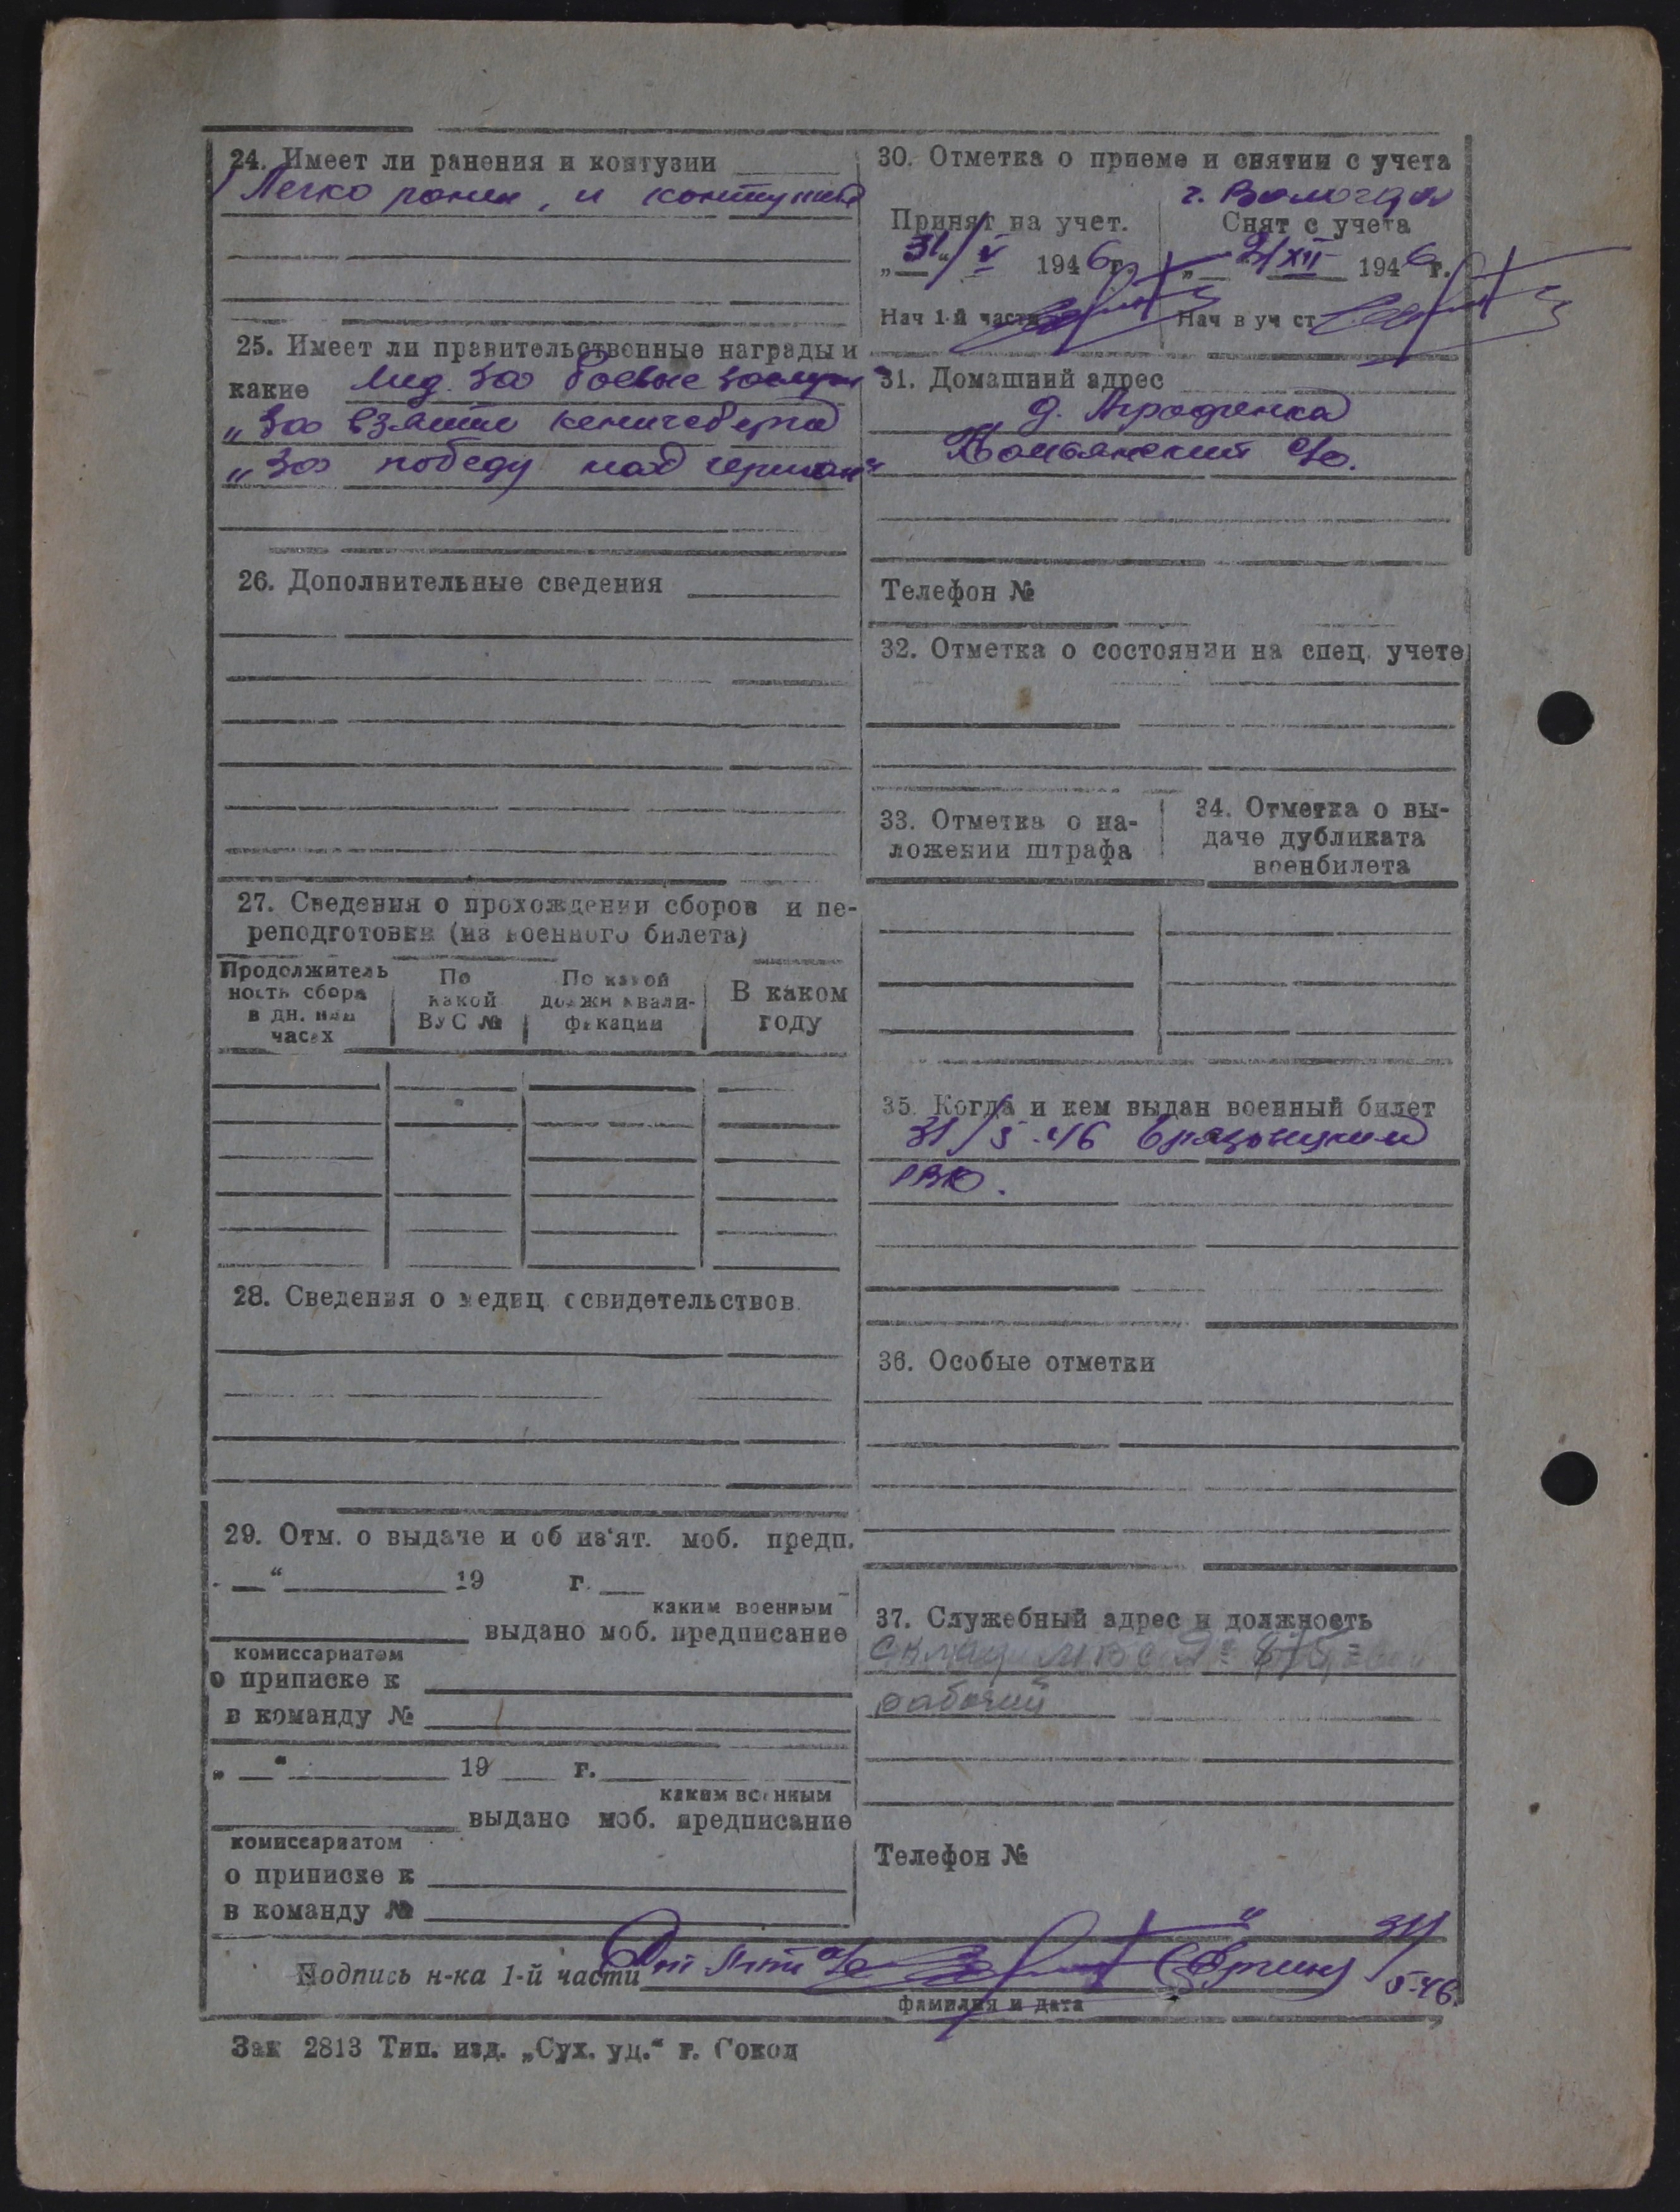 24. Имеет ли ранения и контузии
Легко ранен, и контужен
25. Имеет ли правительственные награды и
какие Мед. За боевые заслуги
„За взятие кенигсберга
„За победу над герман“
26. Дополнительные сведения
27. Сведения о прохождении сборов и пе-
реподготовки (из военного билета)
Продолжитель
ность сбора
в дн. или
часах
По
какой
ВУС №
По какой
должн квали-
фикации
В каком
году
28. Сведения о медиц освидетельствов.
29. Отм. о выдаче и об из'ят. моб. предп.
„ “ 19 г.
каким военным
выдано моб. предписание
комиссариатом
о приписке к
в команду №
„ “ 19 г.
каким военным
выдано моб. предписание
комиссариатом
о приписке к
в команду №
30. Отметка о приеме и снятии с учета
г. Вологда
Принят на учет.
„31“/V 1946 г.
Нач 1-й части
Снят с учета
„ XII 1946 г.
Нач в уч ст
31. Домашний адрес
д.
с/с.
Телефон №
32. Отметка о состоянии на спец. учете
33. Отметка о на-
ложении штрафа
34. Отметка о вы-
даче дубликата
военбилета
35. Когда и кем выдан военный билет
31/5-46
РВК.
36. Особые отметки
37. Служебный адрес и должность
рабочий
Телефон №
Подпись н-ка 1-й части 31/5-46.
фамилия и дата
Зак 2813 Тип. изд. „Сух. уц.“ г. Сокол